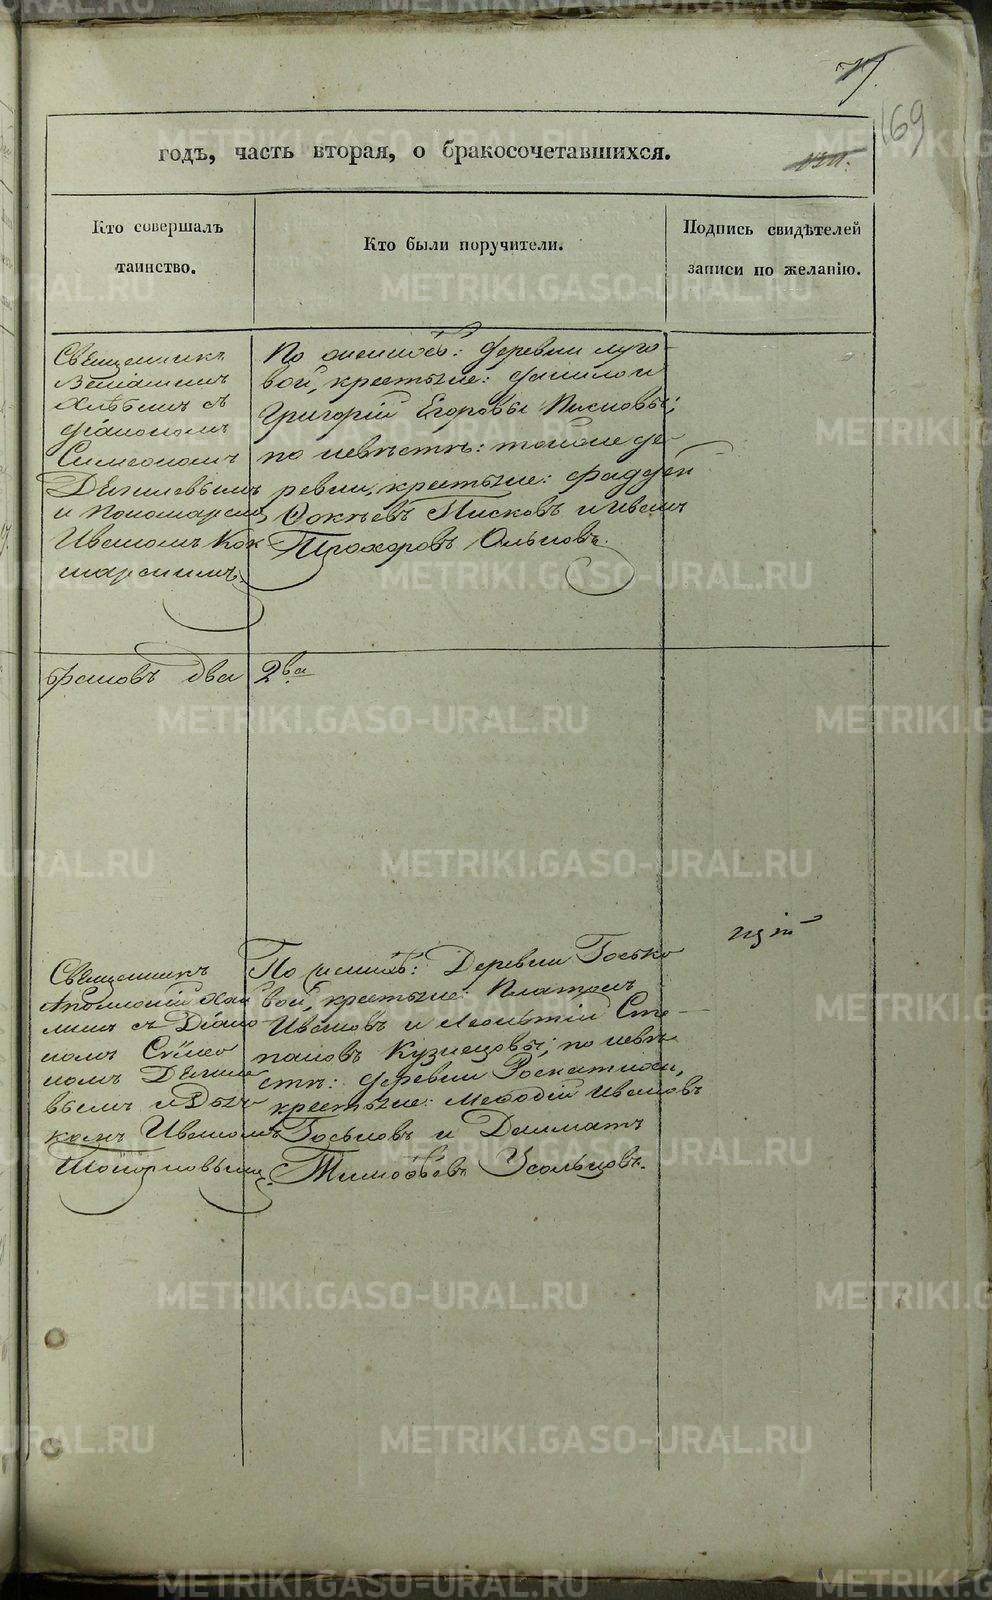 169
годъ, часть вторая, о бракосочетавшихся.
Кто совершалъ
таинство.
Кто были поручители.
Подпись свидѣтелей
записи по желанію.
Священникъ
съ
Діакономъ
Симеономъ
и Пономаремъ
Иваномъ Кок
шарскимъ.
По женихѣ: деревни Луго-
вой, крестьяне: Данило и
Григорій Егоровы Писковы;
по невѣстѣ: тойже де-
ревни, крестьяне: Фаддей
Фокѣевъ Писковъ и Иванъ
Прохоровъ Ольковъ.
браковъ два 2ва
Священникъ
Аполлоній
съ Діако
номъ Сүмео
номъ
вымъ и Дьяч
комъ Иваномъ
По женихѣ: Деревни Госько
вой, крестьяне: Платонъ
Ивановъ и Леонтій Сте-
пановъ Кузнецовы; по невѣ
стѣ: деревни Роскатиской,
крестьяне: Меѳодій Ивановъ
Госьковъ и Далматъ
Тимофѣевъ Усольцовъ.
METRIKI.GASO-URAL.RU